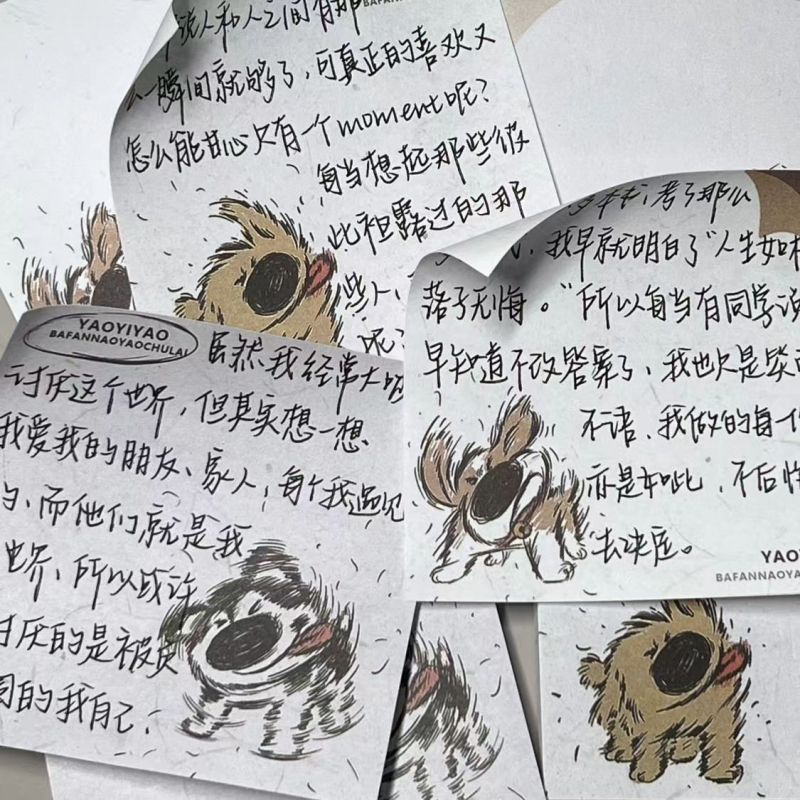 说人和人之间有那
BAFANNAOYAOCHULAI
一瞬间就够了，可真正的喜欢又
怎么能甘心只有一个moment呢？
每当想起那些彼
此袒露过的那
些人，
呢？
考了那么
我早就明白了"人生如棋
落子无悔。"所以每当有同学说
早知道不改答案了，我也只是笑而
不语，我做的每一个
亦是如此，不后悔
去决定。
YAO
BAFANNAOYA
YAOYIYAO
BAFANNAOYAOCHULAI
虽然我经常大喊
讨厌这个世界，但其实想一想
我爱我的朋友、家人，每个我遇见
的，而他们就是我
世界，所以或许
讨厌的是被
的我自己.